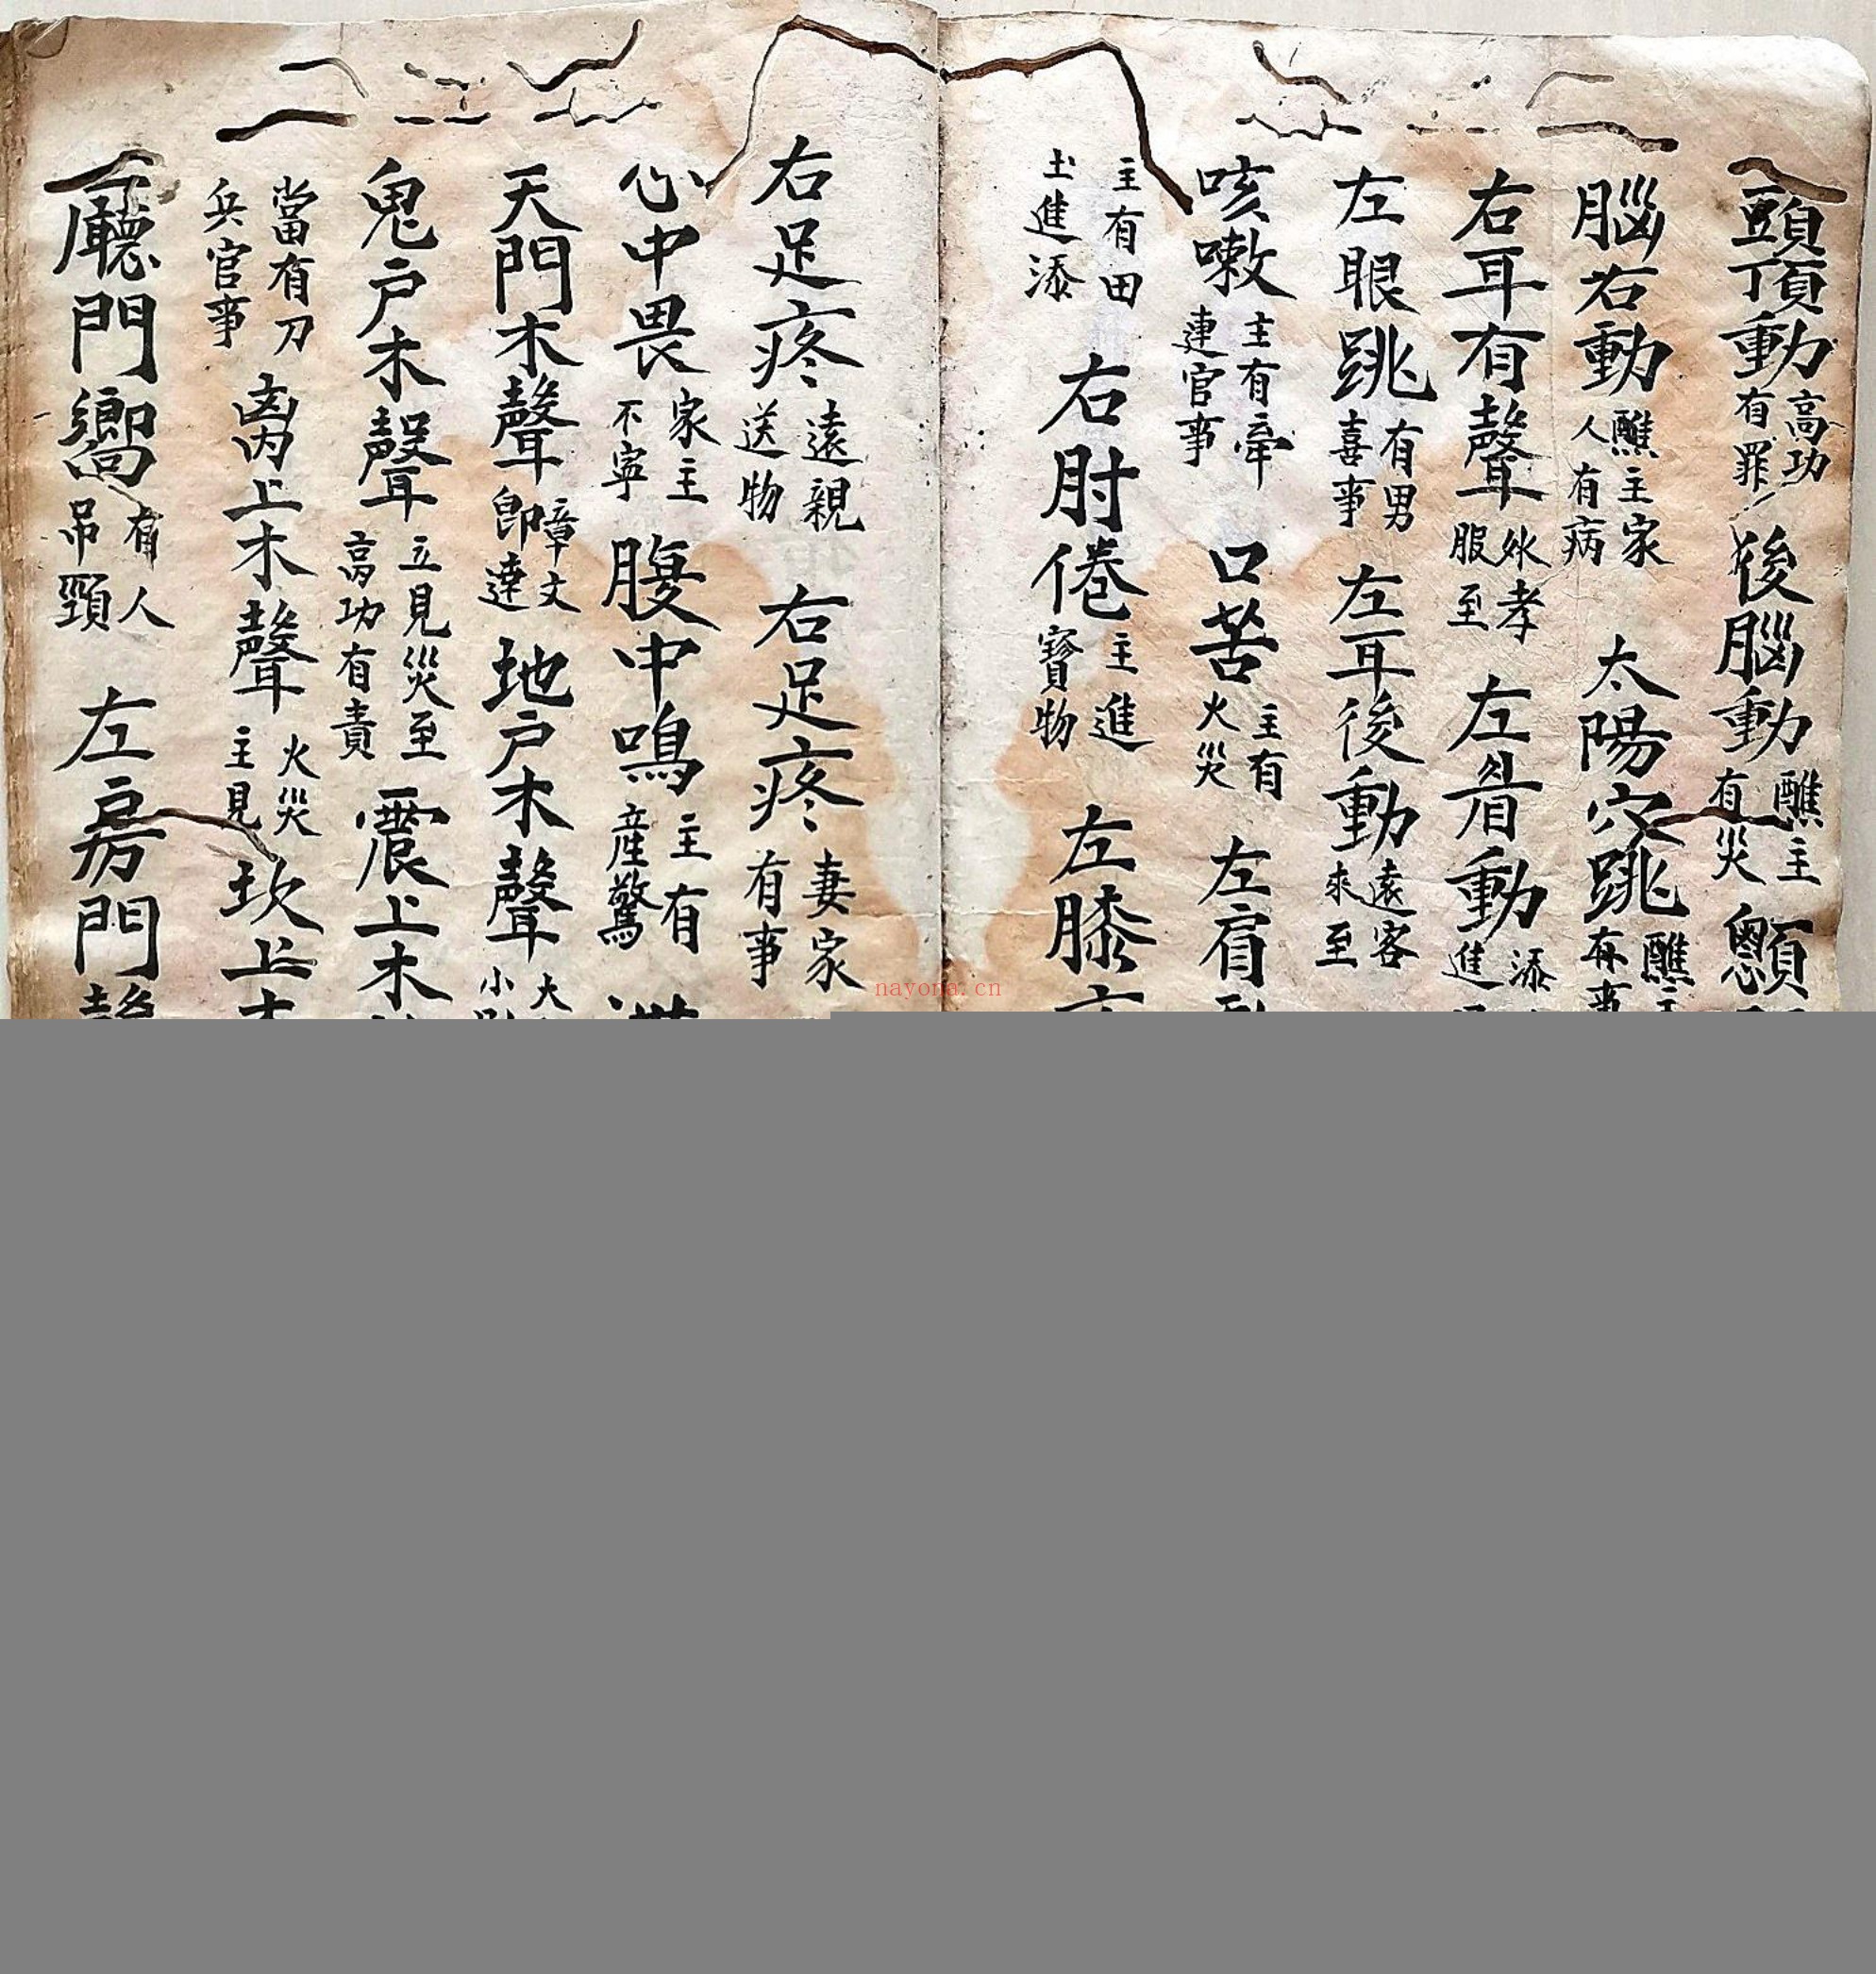 頭頂動 高功有罪 後腦動 醮主有災 顖
腦右動 醮主家人有病 太陽穴跳 醮主有事
右耳有聲 孝服至 左眉動 添進
左眼跳 有男喜事 左耳後動 遠客來至
咳嗽 主有牽連官事 口苦 主有火災 左肩
主有田土進添 右肘倦 主進寶物 左膝
右足疼 遠親送物 右足疼 妻家有事
心中畏 家主不寧 腹中鳴 主有産驚
天門木聲 章文即達 地戶木聲 大小
鬼戶木聲 立見災至高功有責 震上木
當有刀兵官事 离上木聲 火災主見 坎上木
廳門嚮 有人吊頸 左房門聲
nayona.cn